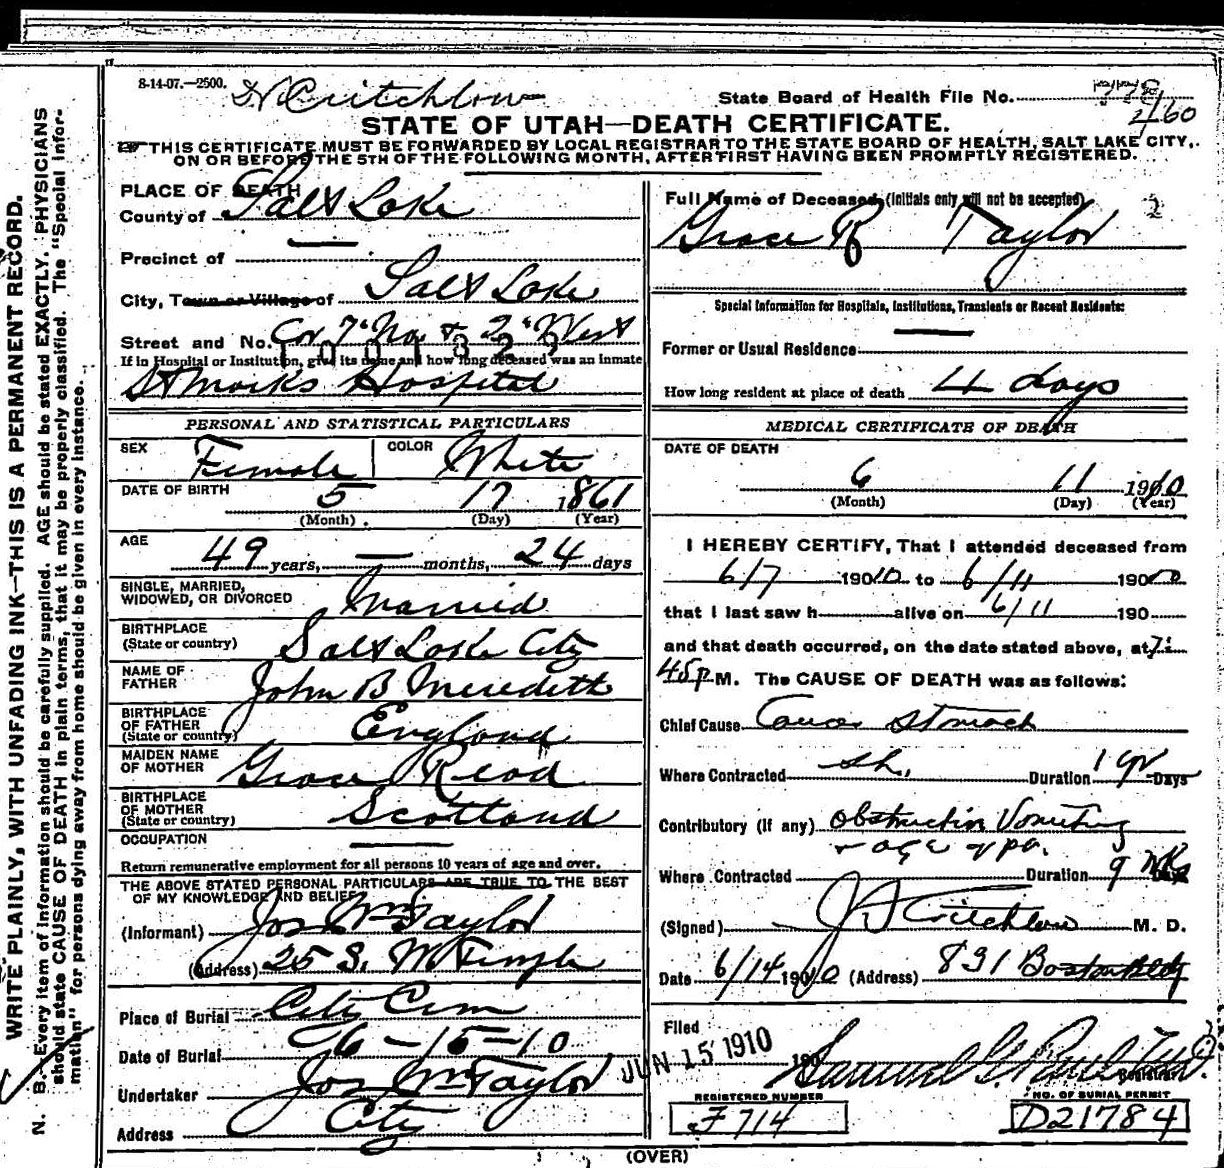 8-14-07.—2500.
State Board of Health File No.
460
STATE OF UTAH—DEATH CERTIFICATE.
THIS CERTIFICATE MUST BE FORWARDED BY LOCAL REGISTRAR TO THE STATE BOARD OF HEALTH, SALT LAKE CITY,
ON OR BEFORE THE 5TH OF THE FOLLOWING MONTH, AFTER FIRST HAVING BEEN PROMPTLY REGISTERED.
WRITE PLAINLY, WITH UNFADING INK—THIS IS A PERMANENT RECORD.
N. B.—Every item of information should be carefully supplied. AGE should be stated EXACTLY. PHYSICIANS
should state CAUSE OF DEATH in plain terms, that it may be properly classified. The "Special Infor-
mation" for persons dying away from home should be given in every instance.
PLACE OF DEATH
County of Salt Lake
Precinct of
City, Town or Village of Salt Lake
Street and No. Cor 7" No. & 2" West
If in Hospital or Institution, give its name and how long deceased was an inmate
St Marks Hospital
PERSONAL AND STATISTICAL PARTICULARS
SEX Female COLOR White
DATE OF BIRTH 5 17 1861
(Month) (Day) (Year)
AGE 49 years, — months, 24 days
SINGLE, MARRIED,
WIDOWED, OR DIVORCED Married
BIRTHPLACE
(State or country) Salt Lake City
NAME OF
FATHER John B Meredith
BIRTHPLACE
OF FATHER
(State or country) England
MAIDEN NAME
OF MOTHER Grace Read
BIRTHPLACE
OF MOTHER
(State or country) Scotland
OCCUPATION
Return remunerative employment for all persons 10 years of age and over.
THE ABOVE STATED PERSONAL PARTICULARS ARE TRUE TO THE BEST
OF MY KNOWLEDGE AND BELIEF
(Informant) Jos Wm Taylor
(Address) 25 S. W Temple
Place of Burial City Cem
Date of Burial 6-15-10
Undertaker Jos Wm Taylor
Address City
Full Name of Deceased, (Initials only will not be accepted)
Grace R Taylor
Special Information for Hospitals, Institutions, Transients or Recent Residents:
Former or Usual Residence
How long resident at place of death 4 days
MEDICAL CERTIFICATE OF DEATH
DATE OF DEATH
6 11 1910
(Month) (Day) (Year)
I HEREBY CERTIFY, That I attended deceased from
6/7 1910 to 6/11 1910
that I last saw h alive on 6/11 190
and that death occurred, on the date stated above, at 7:
45 p M. The CAUSE OF DEATH was as follows:
Chief Cause Cancer Stomach
Where Contracted Duration 1 yr Days
Contributory (if any) Obstruction Vomiting
Where Contracted Duration 9
(Signed) Critchlow M. D.
Date 6/14 1910 (Address) 831 Boston Bldg
Filed JUN 15 1910 190
Samuel G. Paul
Registrar
REGISTERED NUMBER
F 714
NO. OF BURIAL PERMIT
D21784
(OVER)